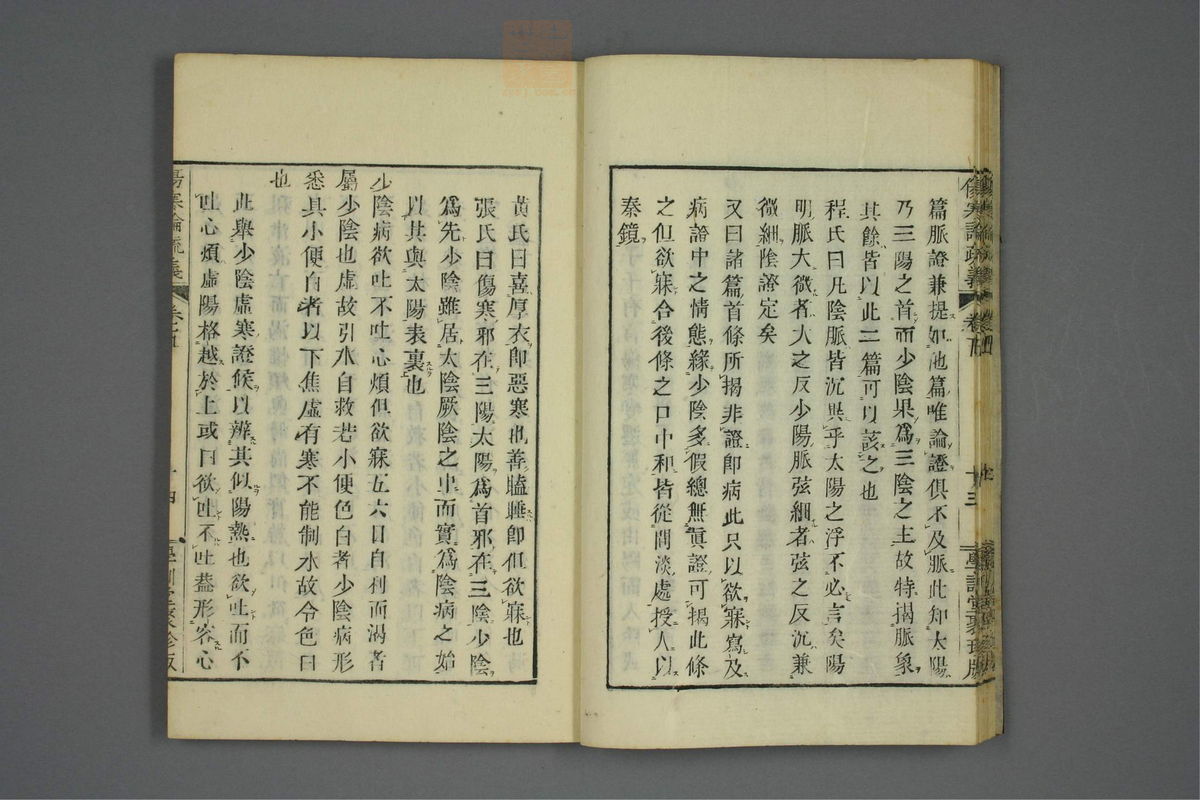 篇脈證兼提如他篇唯論證俱不及脈此知太陽
乃三陽之首而少陰果爲三陰之主故特揭脈象
其餘皆以此二篇可以該之也
程氏曰凡陰脈皆沉異乎太陽之浮不必言矣陽
明脈大微者大之反少陽脈弦細者弦之反沉兼
微細陰證定矣
又曰諸篇首條所揭非證即病此只以欲寐寫及
病證中之情態緣少陰多假總無眞證可揭此條
之但欲寐合後條之口中和皆從閒淡處授人以
秦鏡
黄氏曰喜厚衣即惡寒也善瞌睡即但欲寐也
張氏曰傷寒邪在三陽太陽爲首邪在三陰少陰
爲先少陰雖居太陰厥陰之中而實爲陰病之始
以其與太陽表裏也
少陰病欲吐不吐心煩但欲寐五六日自利而渴者
屬少陰也虛故引水自救若小便色白者少陰病形
悉具小便白者以下焦虛有寒不能制水故令色白
也
此舉少陰虛寒證候以辨其似陽熱也欲吐而不
吐心煩虛陽格越於上或曰欲吐不吐蓋形容心
傷寒論疏義